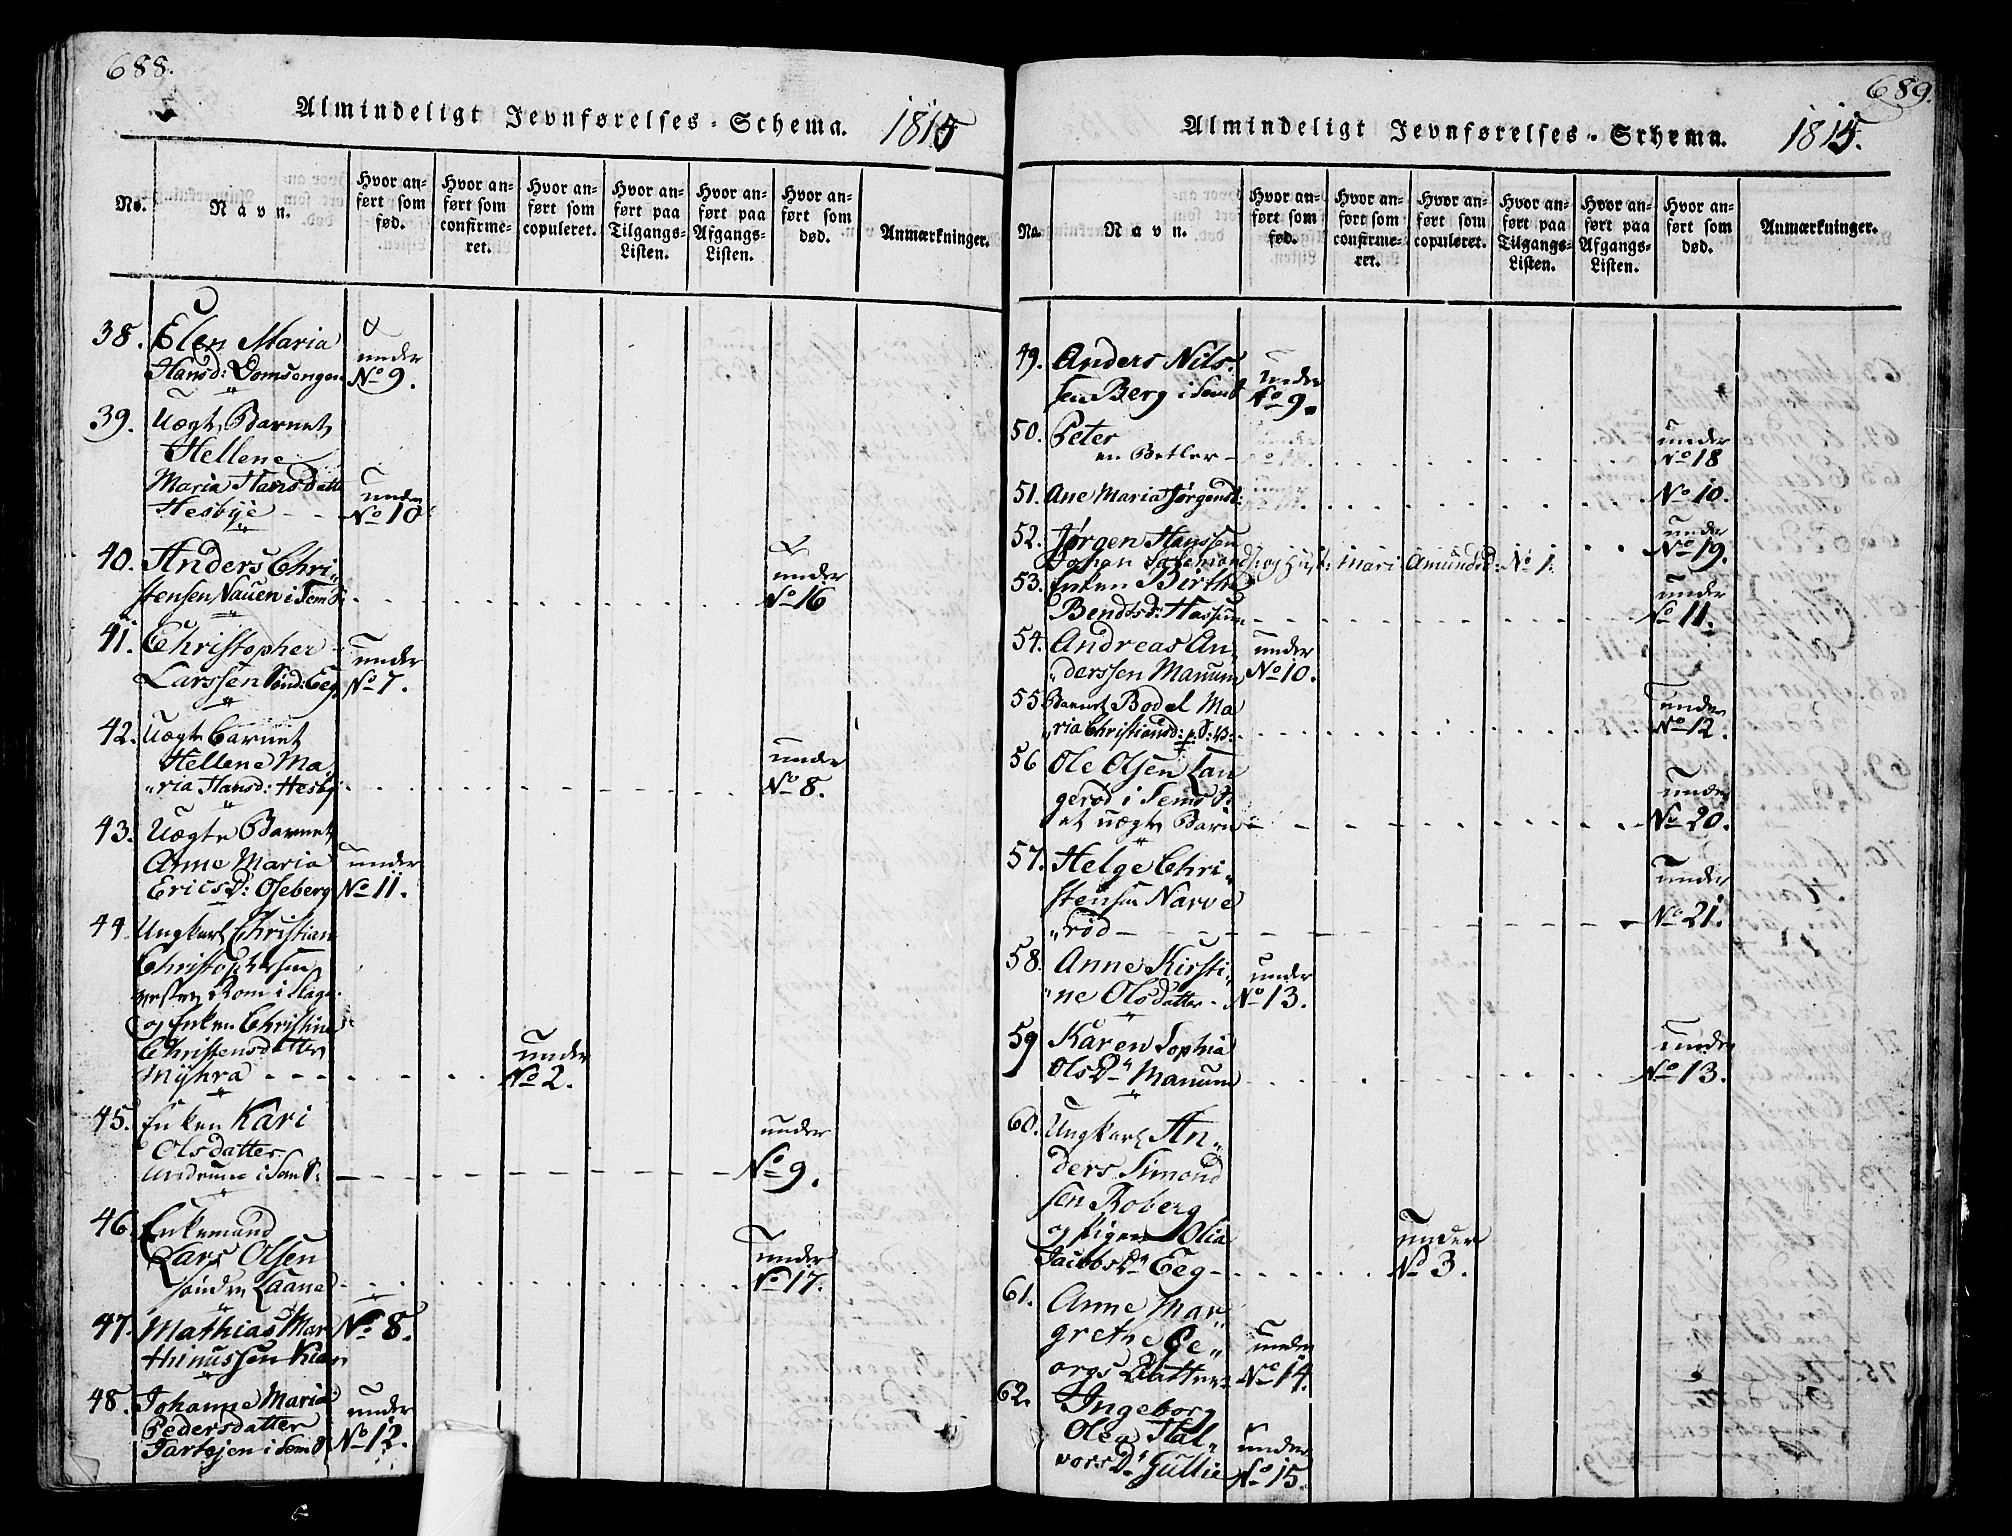 688.
Almindeligt Jevnførelses-Schema. 1815
No.
Navn.
Hvor anført som fød.
Hvor anført som confirmeret.
Hvor anført som copuleret.
Hvor anført paa Tilgangs-Listen.
Hvor anført paa Afgangs-Listen.
Hvor anført som død.
Anmærkninger.
38. Elen Maria
Hansd: Domsengen
under
No 9.
39. Uægte Barnet
Hellene
Maria Hansdatter
Hesbye - -
under
No 10
40. Anders Chri„
stensen Nauen i Sem S:
under
No 16
41. Christopher
Larssen Sønd: Eeg
under
No 7.
42. Uægte Barnet
Hellene Ma
„ria Hansd: Hesby
under
No 8.
43. Uægte Barnet
Anne Maria
Ericsd: Oseberg
under
No 11.
44 Ungkarl Christian
Christophersen
vestre Rom i Slage
og Enken Christine
Christensdatter
Myhra - - -
under
No 2.
45. Enken Kari
Olsdatter
Undrum i Sem S:
under
No 9.
46. Enkemand
Lars Olsen
søndre Laane
under
No 17.
47. Mathias Mar
thinussen Kiær
No 8.
48. Johanne Maria
Pedersdatter
i Sem S
under
No 12.
689.
Almindeligt Jevnførelses-Schema. 1815.
No.
Navn.
Hvor anført som fød.
Hvor anført som confirmeret.
Hvor anført som copuleret.
Hvor anført paa Tilgangs-Listen.
Hvor anført paa Afgangs-Listen.
Hvor anført som død.
Anmærkninger.
49. Anders Nils„
sen Berg i Sem S
under
No 9.
50. Peter
en Betler -
under
No 18
51. Ane Maria Jørgensd:
No 10.
52. Jørgen Hanssen
under
No 19.
Johan og Hust: Mari Amundsd: No 1.
53. Enken Birthe
Bendtsd: Hassum
under
No 11.
54. Andreas An„
„derssen Manum
under
No 10.
55 Barnet Bodel Ma
„ria Christiansd:
under
No 12.
56 Ole Olsen Lan
gerød i Sems S:
et uægte Barn
under
No 20.
57. Helge Chri„
stensen Narve
„rød -
under
No 21.
58. Anne Kirsti„
„ne Olsdatter -
under
No 13.
59 Karen Sophia
Olsdr Manum
under
No 13.
60. Ungkarl An„
ders Simond
sen Roberg
og Pigen Olia
Jacobsdr Eeg -
under
No 3.
61. Anne Mar„
grethe Ge„
orgs Datter
under
No 14.
62. Ingeborg
Olea Hal„
vorsdr Gullie
under
No 15.